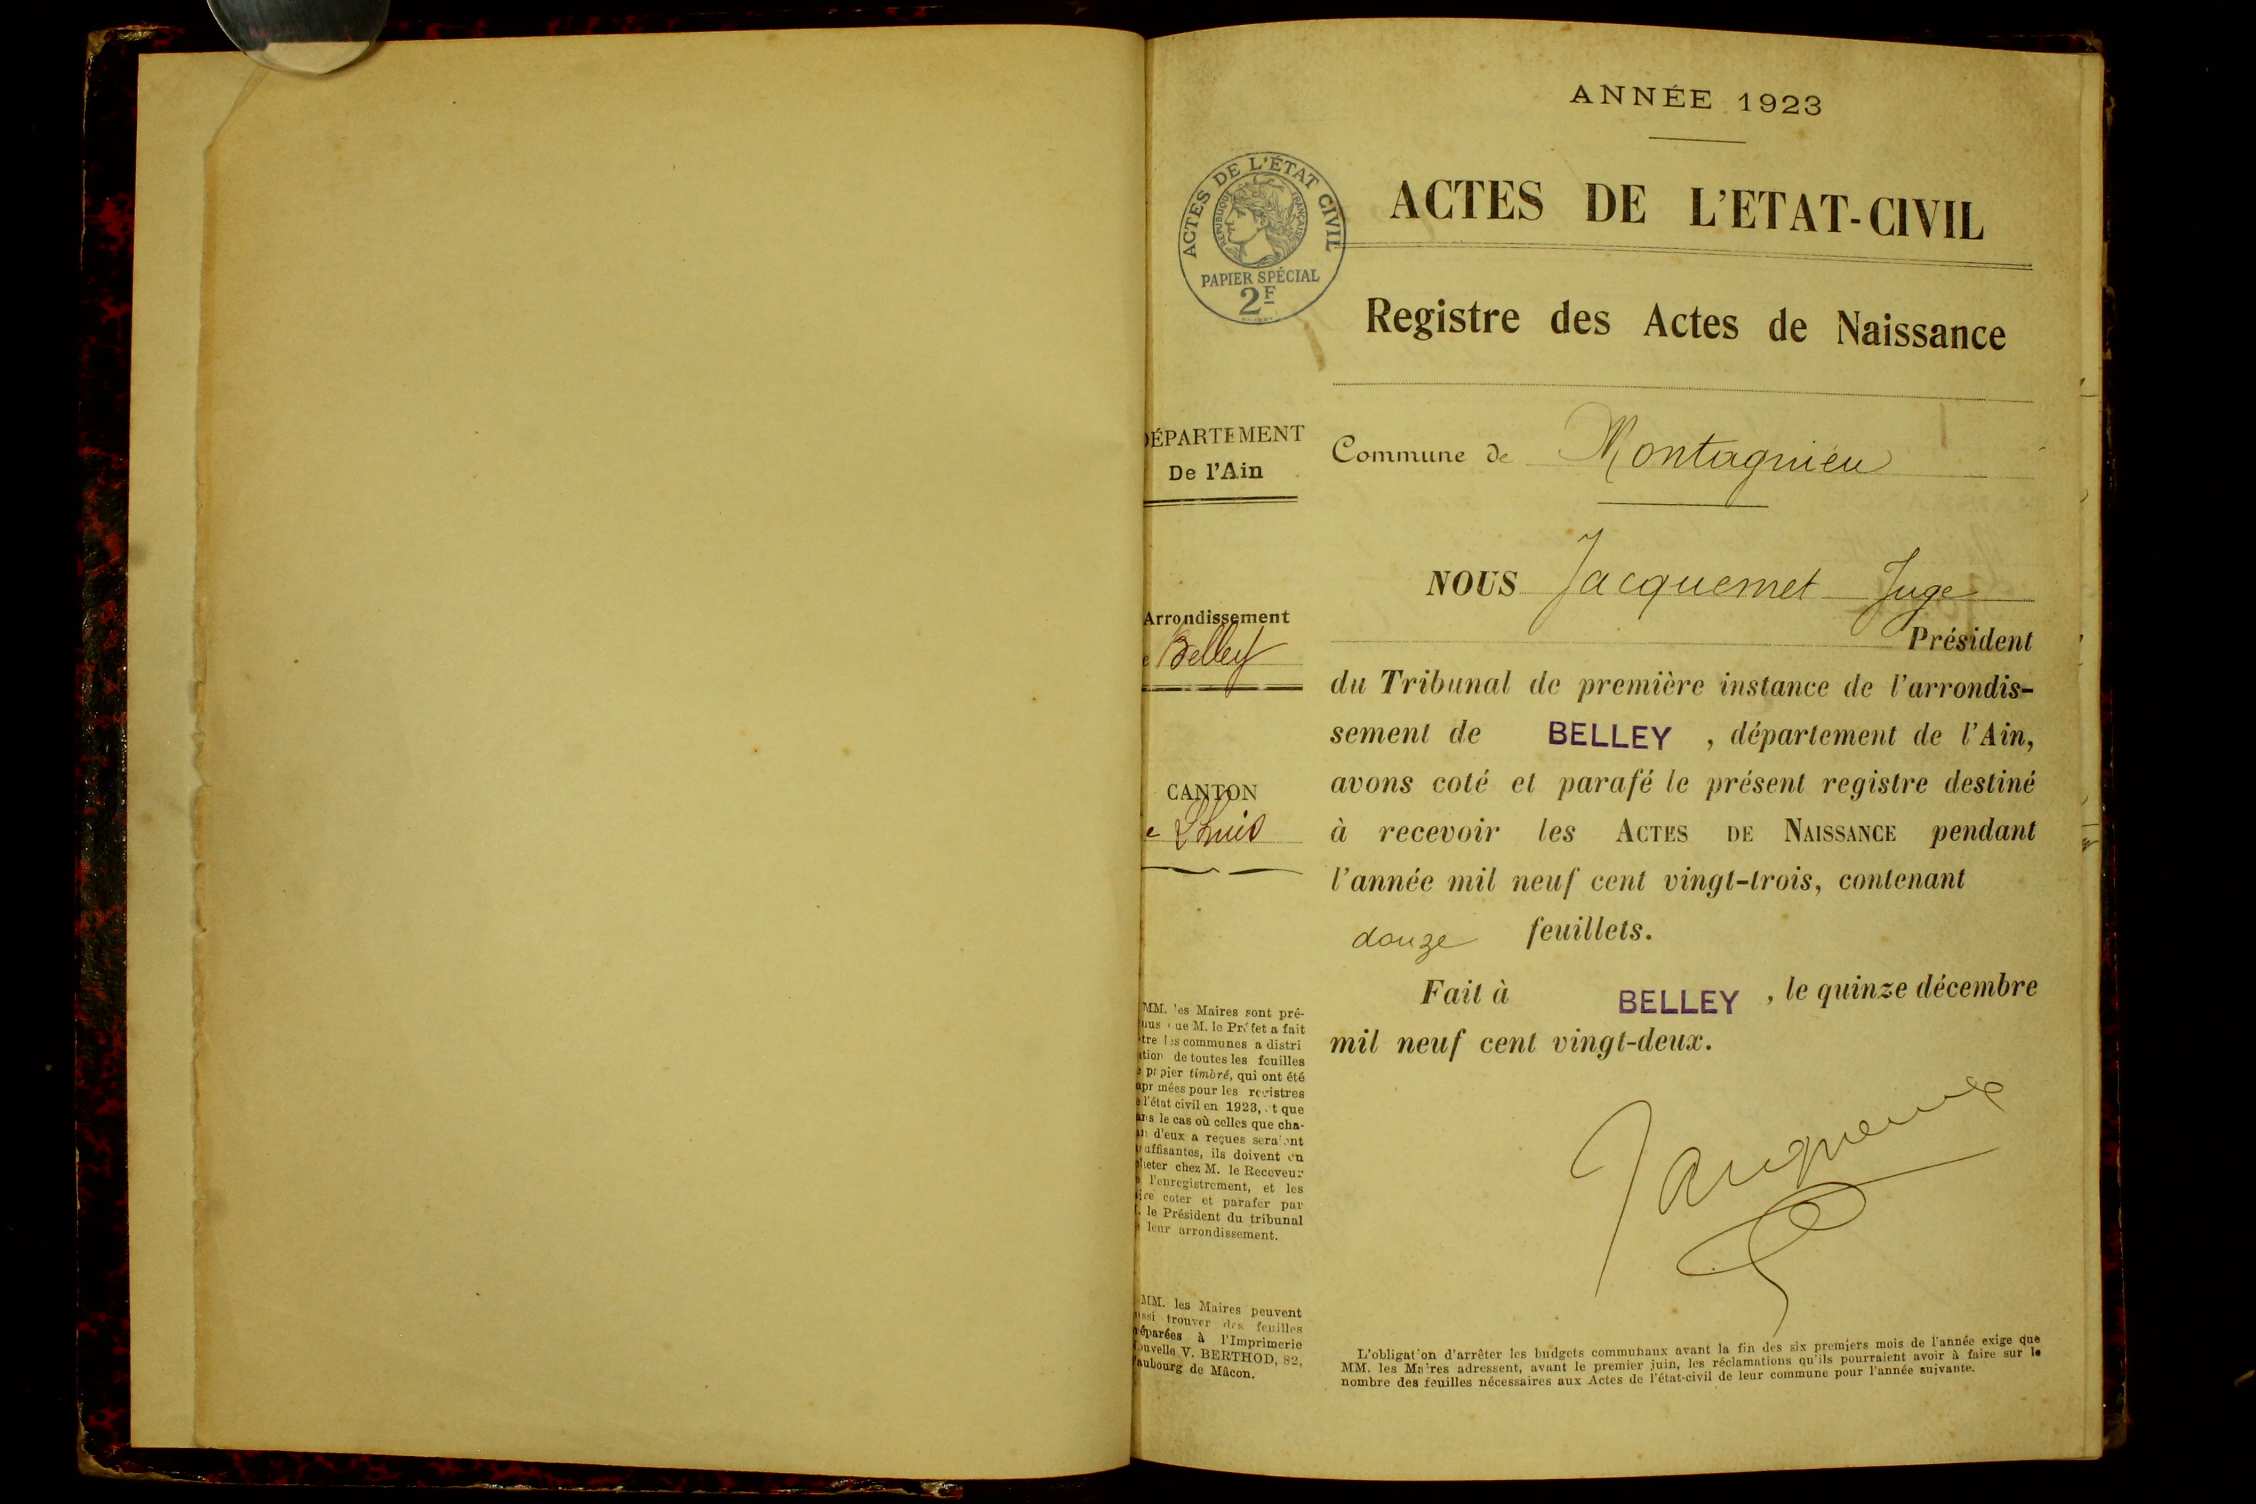 ANNÉE 1923
ACTES DE L'ÉTAT CIVIL
RÉPUBLIQUE FRANÇAISE
PAPIER SPÉCIAL
2F
ACTES DE L'ETAT-CIVIL
Registre des Actes de Naissance
DÉPARTEMENT
De l'Ain
Commune de Montagnieu
NOUS Jacquemet Juge
Président
Arrondissement
e Belley
du Tribunal de première instance de l'arrondis-
sement de BELLEY , département de l'Ain,
avons coté et parafé le présent registre destiné
CANTON
e Lhuis
à recevoir les ACTES DE NAISSANCE pendant
l'année mil neuf cent vingt-trois, contenant
douze feuillets.
Fait à BELLEY , le quinze décembre
mil neuf cent vingt-deux.
Jacquemet
MM. les Maires sont pré-
nus que M. le Préfet a fait
tre les communes a distri
ution de toutes les feuilles
e papier timbré, qui ont été
primées pour les registres
e l'état civil en 1923, et que
ans le cas où celles que cha-
un d'eux a reçues seraient
suffisantes, ils doivent en
cheter chez M. le Receveur
e l'enregistrement, et les
ire coter et parafer par
. le Président du tribunal
e leur arrondissement.
MM. les Maires peuvent
ussi trouver des feuilles
réparées à l'Imprimerie
ouvelle V. BERTHOD, 82,
aubourg de Mâcon.
L'obligation d'arrêter les budgets communaux avant la fin des six premiers mois de l'année exige que
MM. les Maires adressent, avant le premier juin, les réclamations qu'ils pourraient avoir à faire sur le
nombre des feuilles nécessaires aux Actes de l'état-civil de leur commune pour l'année suivante.